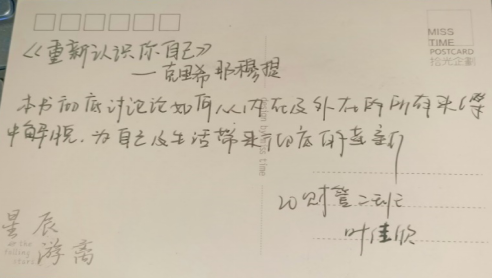 MISS
TIME
POSTCARD
拾光企劃
《重新认识你自己》
—克里希那穆提
本书彻底讨论论如何从内在及外在的所有来
中解脱，为自己及生活带来彻底的
20财管二班
叶佳欣
星辰
at the
falling
stars
游离